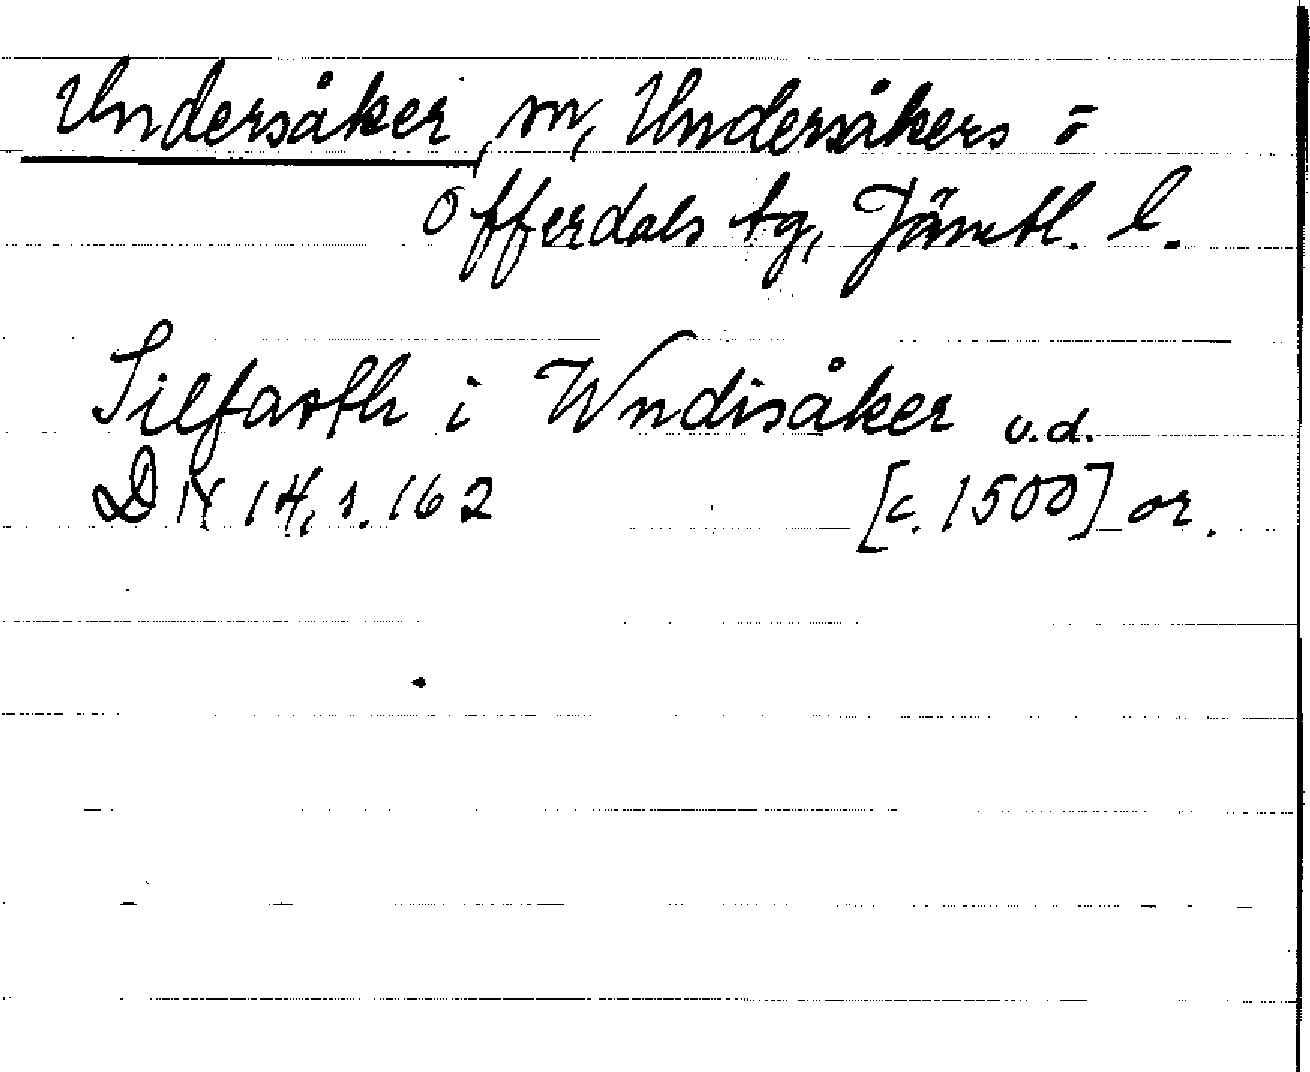 Undersåker, sn, Undersåkers o
Offerdals tg, Jämtl. l.
Silfasth i Wndisåker u.d.
DN 14,1.162 [c. 1500] or.